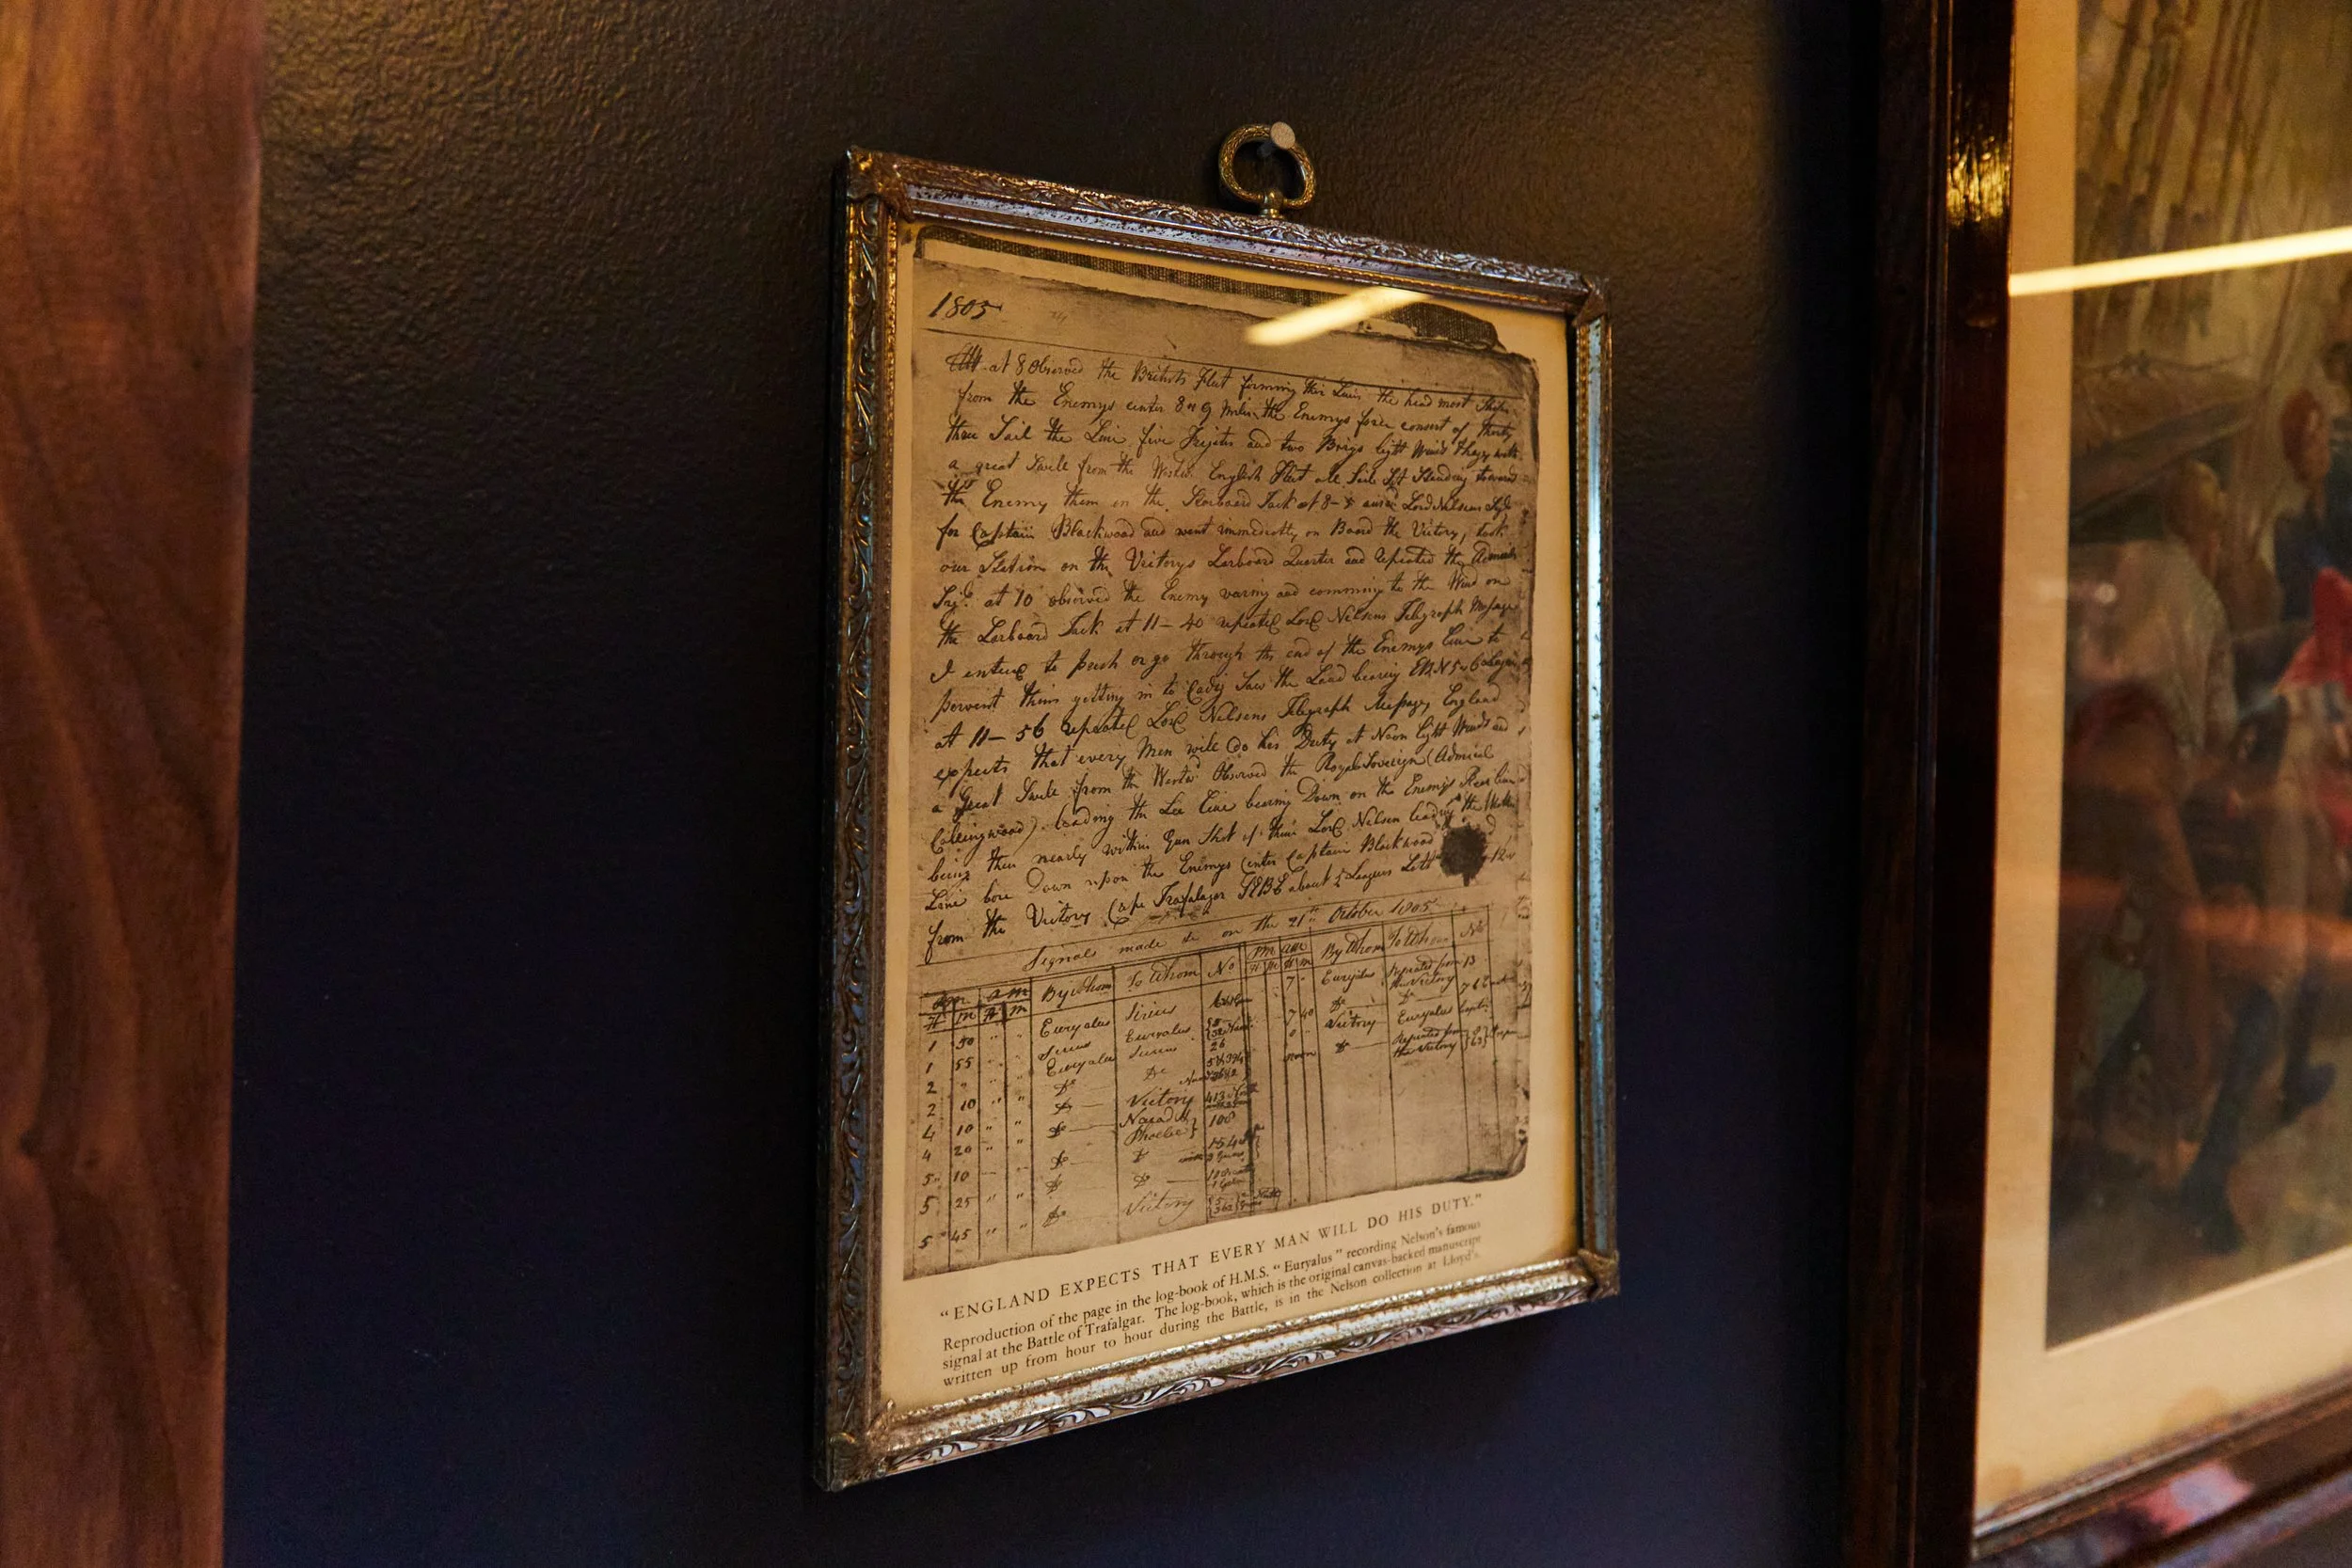 1805
at 8 Observed the British Fleet forming their Lines the head most Ships
from the Enemys center 8 or 9 Miles the Enemys force consist of thirty
three Sail the Line five Frigates and two Brigs light Winds Hazy with
a great Swell from the English Fleet all Sail Set Standing towards
the Enemy then on the Starboard Tack at 8- Lord Nelsons
for Captain Blackwood and went immediatly on Board the Victory, took
our Station on the Victorys Larboard Quarter and repeated the
at 10 observed the Enemy waring and comming to the Wind on
the Larboard Tack at 11-40 repeated Lord Nelsons Telegraph Message
I intend to push or go through the end of the Enemys line to
pervent them getting in to Cadiz Saw the Land bearing
at 11-56 repeated Lord Nelsons Telegraph Message England
expects that every Man will do his Duty at Noon light Winds and
a great Swell from the Observed the Royal Sovereign (Admiral
Collingwood) leading the Lee line bearing Down on the Enemys Rear line
being then nearly within Gun Shot of them Lord Nelson leading the
Line bore Down upon the Enemys Center Captain Blackwood
from the Victory Cape Trafalgar SEBE about 5 Leagues
Signals made on the 21st October 1805
am By Whom To Whom No pm am By Whom To Whom No
H m H m H m H m
1 50 " " Euryalus Sirius 7 Euryalus Repeated from the Victory 13
1 55 Sirius Euryalus
2 " Euryalus Sirius 26 7 40 Victory Euryalus
2 10 " " Do Do noon Do Repeated from the Victory
4 10 " " Do Victory
4 20 " " Do Naiad & Phoebe 108
5 10 Do Do
5 25 " " Do Do
5 45 " " Do Victory
"ENGLAND EXPECTS THAT EVERY MAN WILL DO HIS DUTY."
Reproduction of the page in the log-book of H.M.S. "Euryalus" recording Nelson's famous
signal at the Battle of Trafalgar. The log-book, which is the original canvas-backed manuscript
written up from hour to hour during the Battle, is in the Nelson collection at Lloyd's.